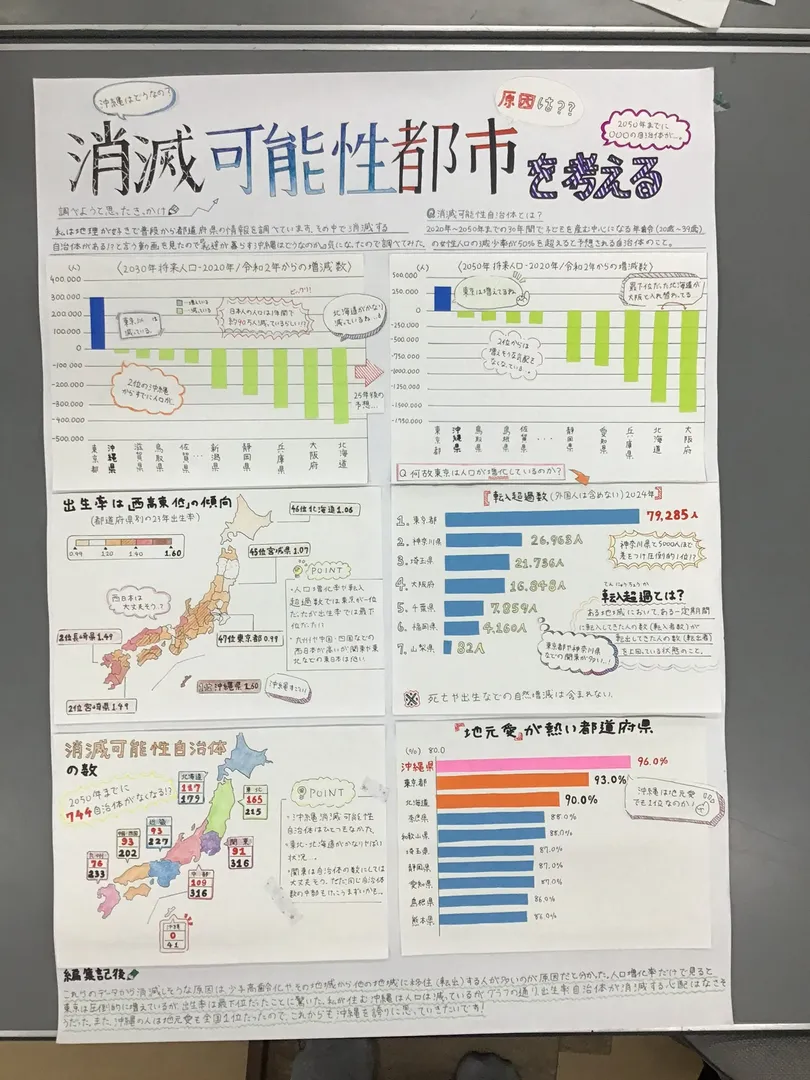 沖縄はどうなの?
原因は??
2050年までに
〇〇〇の自治体が…。
消滅可能性都市を考える
調べようと思ったきっかけ
私は地理が好きで普段から都道府県の情報を調べています。その中で消滅する
自治体がある!?と言う動画を見たので私達が暮らす沖縄はどうなのか気になったので調べてみた。
消滅可能性自治体とは?
2020年〜2050年までの30年間で子どもを産む中心になる年齢(20歳〜39歳)
の女性人口の減少率が50%を超えると予想される自治体のこと。
〈2030年将来人口-2020年/令和2年からの増減数〉
(人)
400.000
300.000
200.000
100.000
0
-100.000
-200.000
-300.000
-400.000
-500.000
…増えている
…減っている
東京以外は
減っている。
ビックリ!
日本の人口は1年間で
約90万人減っているらしい!!
北海道がかなり
減っているね…!
2位の沖縄
からすでに人口が…
25年後の
予想…
東京都
沖縄県
滋賀県
鳥取県
佐賀県
…
新潟県
静岡県
兵庫県
大阪府
北海道
〈2050年将来人口-2020年/令和2年からの増減数〉
(人)
500.000
250.000
0
-250.000
-500.000
-750.000
-1000.000
-1250.000
-1500.000
-1750.000
東京は増えてるね
最下位だった北海道が
大阪と入れ替わってる…
2位からは
増えそうな気配も
なくなっている…
東京都
沖縄県
鳥取県
島根県
佐賀県
…
静岡県
愛知県
兵庫県
北海道
大阪府
Q 何故東京は人口が増加しているのか?
出生率は「西高東低」の傾向
(都道府県別の23年出生率)
0.99 1.20 1.40 1.60
46位北海道1.06
46位宮城県1.07
西日本は
大丈夫そう?
47位東京都0.99
2位長崎県1.49
沖縄県1.60
沖縄すごい
2位宮崎県1.49
POINT
・人口増化率や転入
超過数では東京が一位
だったが出生率では最下
位だった!
・九州や中国・四国などの
西日本が高いが関東や東
北などの東日本は低い
『転入超過数(外国人は含めない)2024年』
1. 東京都 79,285人
2. 神奈川県 26,963人
3. 埼玉県 21.736人
4. 大阪府 16.848人
5. 千葉県 7.859人
6. 福岡県 4.160人
7. 山梨県 32人
神奈川県と5000人ほど
差をつけ圧倒的1位!?
てんにゅうちょうか
転入超過とは?
ある地域において、ある一定期間
に転入してきた人の数(転入者数)が
転出してきた人の数(転出者)
を上回っている状態のこと。
東京都や神奈川県
などの関東が多い…!
※ 死亡や出生などの自然増減は含まれない。
消滅可能性自治体
の数
2050年までに
744自治体がなくなる!?
北海道
117
179
東北
165
215
近畿
93
227
中国・四国
93
202
関東
91
316
九州
76
233
中部
109
316
沖縄
0
41
POINT
・沖縄消滅可能性
自治体はひとつもなかった。
・東北・北海道がかなりやばい
状況…。
・関東は自治体の数にしては
大丈夫そう。ただ同じ自治体
数の中部もけっこうまずいかも…。
『地元愛』が熱い都道府県
(%) 80.0
沖縄県 96.0%
東京都 93.0%
北海道 90.0%
奈良県 88.0%
和歌山県 88.0%
埼玉県 87.0%
静岡県 87.0%
愛知県 87.0%
島根県 86.0%
熊本県 86.0%
沖縄は地元愛
でも1位なのか!
編集記後
これらのデータから消滅しそうな原因は、少子高齢化やその地域から他の地域に移住(転出)する人が多いのが原因だと分かった。人口増化率だけで見ると
東京は圧倒的に増えているが、出生率は最下位だったことに驚いた。私が住む沖縄は人口は減っているが、グラフの通り出生率自治体が消滅する心配はなさそ
うだった。また、沖縄の人は地元愛も全国1位だったので、これからも沖縄を誇りに思っていきたいです!